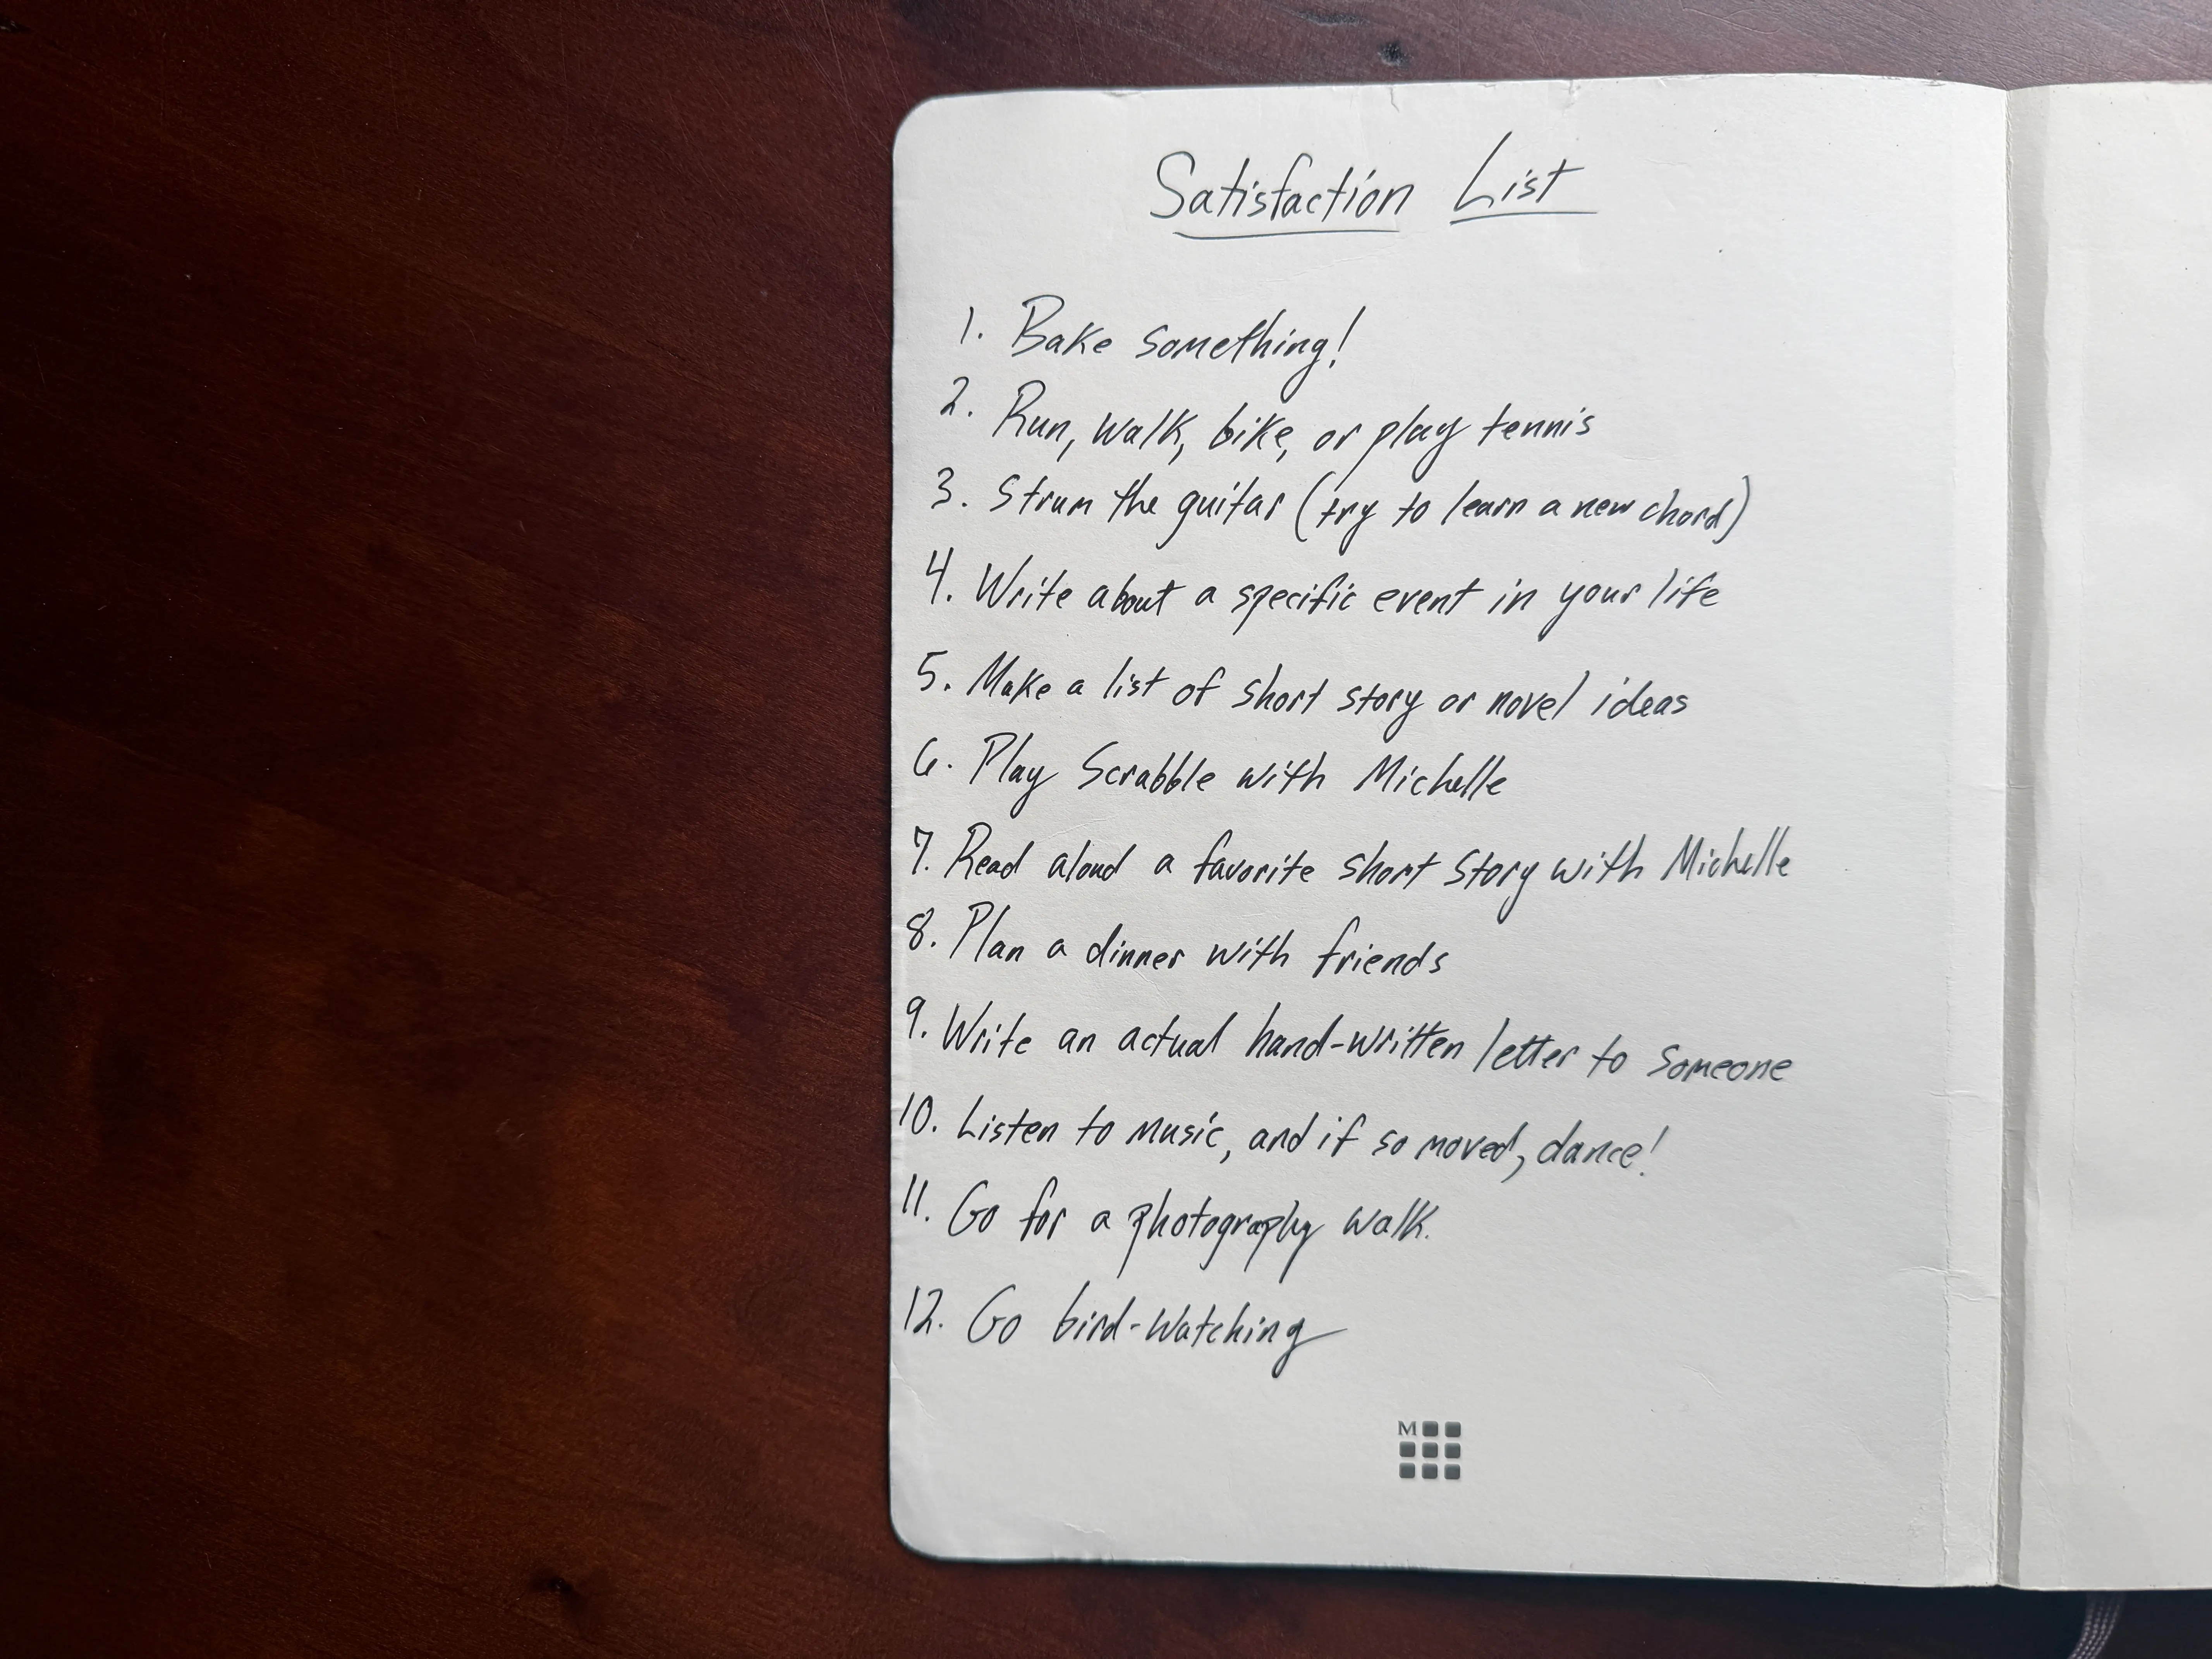 Satisfaction List
1. Bake something!
2. Run, walk, bike, or play tennis
3. Strum the guitar (try to learn a new chord)
4. Write about a specific event in your life
5. Make a list of short story or novel ideas
6. Play Scrabble with Michelle
7. Read aloud a favorite short story with Michelle
8. Plan a dinner with friends
9. Write an actual hand-written letter to someone
10. Listen to music, and if so moved, dance!
11. Go for a photography walk.
12. Go bird-watching
M